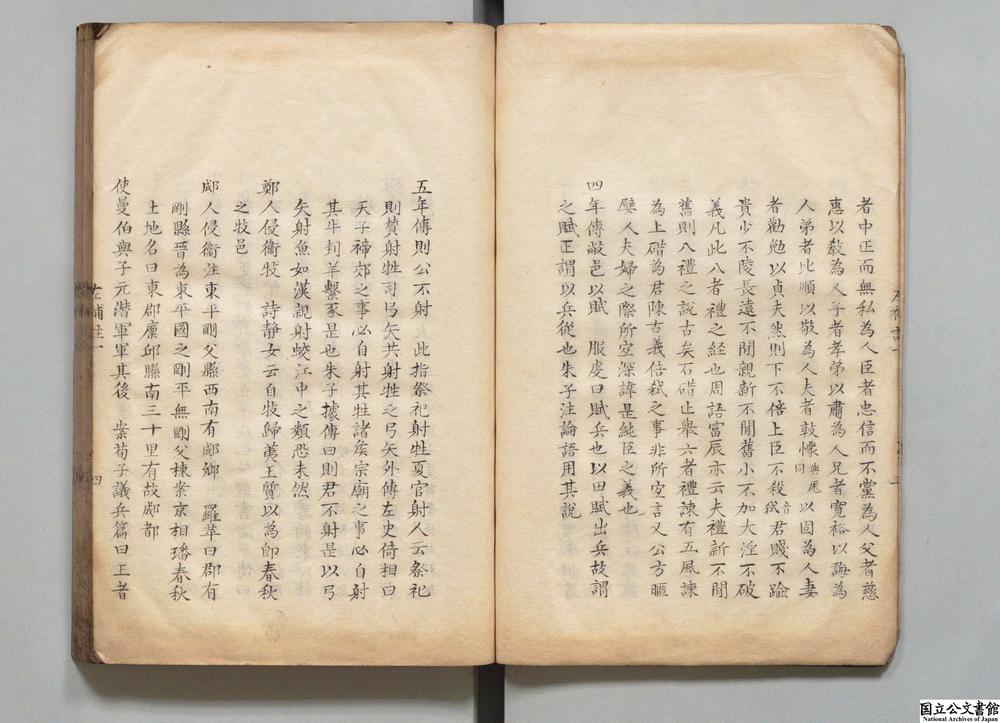 者中正而無私為人臣者忠信而不黨為人父者慈
惠以敎為人子者孝弟以肅為人兄者寬裕以誨為
人弟者比順以敬為人夫者敦懞與厖同以固為人妻
者勸勉以貞夫然則下不倍上臣不殺音弑君賤不踰
貴少不陵長遠不閒親新不閒舊小不加大淫不破
義凡此八者禮之經也周語富辰亦云夫禮新不閒
舊則八禮之說古矣石碏止舉六者禮諫有五風諫
為上碏為君陳古義倍弑之事非所宜言又公方暱
嬖人夫婦之際所宜深諱是純臣之義也
四年傳敝邑以賦 服虔曰賦兵也以田賦出兵故謂
之賦正謂以兵從也朱子注論語用其說
五年傳則公不射 此指祭祀射牲夏官射人云祭祀
則贊射牲司弓矢共射牲之弓矢外傳左史倚相曰
天子禘郊之事必自射其牲諸矦宗廟之事必自射
其牛刲羊擊豕是也朱子據傳曰則君不射是以弓
矢射魚如漢親射蛟江中之類恐未然
鄭人侵衞牧 詩静女云自牧歸荑王質以為卽春秋
之牧邑
郕人侵衞注東平剛父縣西南有郕鄉 羅苹曰郡有
剛縣晉為東平國之剛平無剛父棟案京相璠春秋
土地名曰東郡廩邱縣南三十里有故郕都
使曼伯與子元潛軍軍其後 案荀子議兵篇曰王者
左補注一
四
国立公文書館
National Archives of Japan